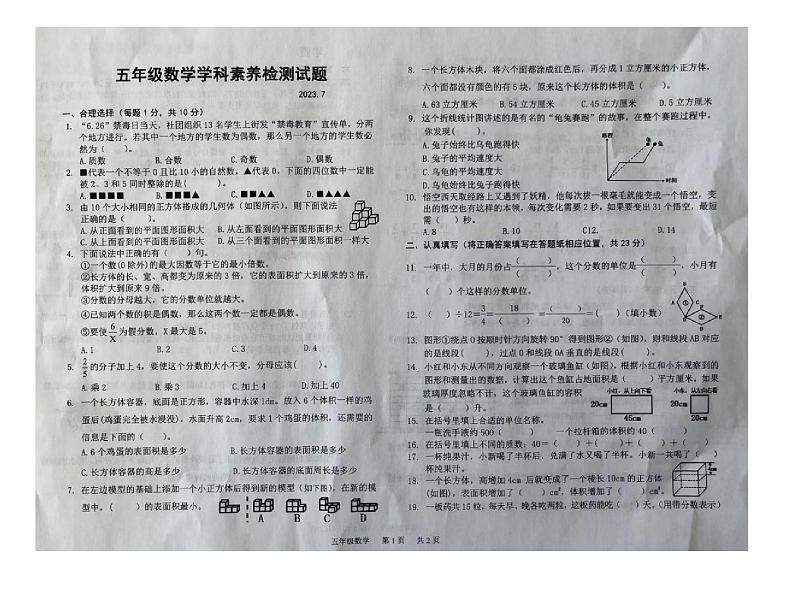 五年级数学学科素养检测试题
2023.7
一、合理选择（每题1分，共10分）
1. “6.26”禁毒日当天，社团组织13名学生上街发“禁毒教育”宣传单，分两
个地方进行。若其中一个地方的学生数为偶数，那么另一个地方的学生数必
然为（ ）。
A.质数 B.合数 C.奇数 D.偶数
2. ■代表一个不等于0且比10小的自然数，▲代表0，下面的四位数中一定能
被2、3和5同时整除的是（ ）。
A.■■▲■ B.■■■▲ C.■■▲▲ D.■▲▲▲
3. 由10个大小相同的正方体搭成的几何体（如图所示），则下面说法
正确的是（ ）。
A.从正面看到的平面图形面积大 B.从左面看到的平面图形面积大
C.从上面看到的平面图形面积大 D.从三个面看到的平面图形面积一样大
4. 下面说法中正确的有（ ）句。
①一个数(0除外)的最大因数等于它的最小倍数。
②长方体的长、宽、高都变为原来的3倍，它的表面积扩大到原来的3倍，
体积扩大到原来9倍。
③分数的分母越大，它的分数单位就越大。
④已知两个数的积是偶数，那么这两个数一定都是偶数。
⑤要使6/X为假分数，X最大是5。
A.1 B.2 C.3 D.4
5. 2/5的分子加上4，要使这个分数的大小不变，分母应该（ ）。
A.乘2 B.乘3 C.加上4 D.加上40
6. 一个长方体容器，底面是正方形，容器中水深1dm。放入6个体积一样的鸡
蛋后(鸡蛋完全被水浸没)，水面升高2cm，要求1个鸡蛋的体积，还需要的
信息是下面的（ ）。
A.6个鸡蛋的表面积是多少 B.长方体容器的表面积是多少
C.长方体容器的高是多少 D.长方体容器的底面周长是多少
7. 在左边模型的基础上添加一个小正方体后得到新的模型（如下图），在新的模
型中，（ ）的表面积最小。
A B C D
8. 一个长方体木块，将六个面都涂成红色后，再分成1立方厘米的小正方体，
六个面都没有颜色的有5块，原来这个长方体的体积是（ ）。
A.63立方厘米 B.54立方厘米 C.45立方厘米 D.5立方厘米
9. 这个折线统计图讲述的是有名的“龟兔赛跑”的故事，在整个赛跑过程中，
你发现（ ）。
A.兔子始终比乌龟跑得快
B.兔子的平均速度大
C.乌龟的平均速度大
D.乌龟始终比兔子跑得快
路程
龟
兔
时间
10. 悟空西天取经路上又遇到了妖精，他每次拔一根毫毛就能变成一个悟空，变
出的悟空也有这样的本领，每次变化需要2秒，如果要变出31个悟空，最短
需（ ）秒。
A.8 B.10 C12. D.14
二、认真填写（将正确答案填在答题纸相应位置，共23分）
11. 一年中，大月的月份占（ ）/（ ），这个分数的单位是（ ）/（ ），小月有
（ ）个这样的分数单位。
12. （ ）÷12＝3/4＝18/（ ）＝（ ）/20＝（ ）（填小数）
13. 图形①绕点O按顺时针方向旋转90°得到图形②（如图），则和线段AB对应
的是线段（ ），过点O和线段OA垂直的是线段（ ）。
14. 小红和小东从不同方向观察一个玻璃鱼缸（如图），根据小红和小东观察到的
图形和测量出的数据，计算出这个鱼缸占地面积是（ ）平方厘米，如果
玻璃厚度忽略不计，这个玻璃鱼缸的容积
是（ ）升。
小红，从上向下看
20cm
45cm
小东，从左向右看
20cm
20cm
15. 在括号里填上合适的单位名称。
一瓶洗手液约500（ ） 一个拉杆箱的体积约40（ ）
16. 在括号里填上不同的质数：40＝（ ）＋（ ）＋（ ）＋（ ）
17. 一杯纯果汁，小新喝了半杯后，兑满了水又喝了半杯。小新一共喝了（ ）
杯纯果汁。
18. 一个长方体，高增加4cm后就变成了一个棱长10cm的正方体
（如图），表面积增加了（ ）cm²，体积增加了（ ）cm³。
19. 一板药共15粒，每天早、晚各吃两粒，这板药能吃（ ）天。（用带分数表示）
五年级数学 第1页 共2页